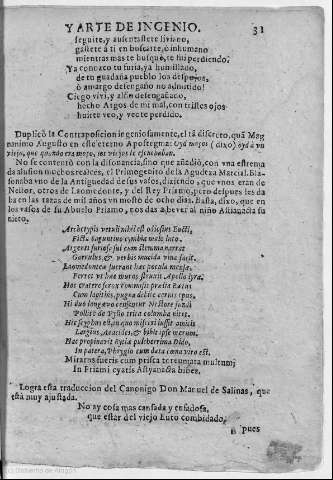 Y ARTE DE INGENIO. 31
seguite, y ausentastete liviano,
gastete à ti en buscarte, ò inhumano
mientras mas te busqò, te fui perdiendo.
Ya conozco tu furia, ya humillado,
de tu guadaña pueblo los despojos,
ò amargo desengaño no admitido!
Ciego viví, y al fin desengañado,
hecho Argos de mi mal, con tristes ojos
huirte veo, y veote perdido.
Duplicò la Contraposicion ingeniosamente, el tã discreto, quã Mag
nanimo Augusto en este eterno Apostegma: Oyd moços (dixo) oyd à vn
viejo, que quando era moço, los viejos le escuchavan.
No se contentò con la disonancia, sino que añadiò, con vna estrema
da alusion muchos realces, el Primogenito de la Agudeza Marcial. Bla-
sonaba vno de la Antiguedad de sus vasos, diziendo, que vnos eran de
Nestor, otros de Laomedonte, y del Rey Priamo, pero despues les da
ba en las tazas de mil años vn mosto de ocho dias. Basta, dixo, que en
los vasos de su Abuelo Priamo, nos das à bever al niño Astianacta su
nieto.
Archetypis vetuli nihil est odiosius Eucti,
Ficta Saguntino cymbia malo luto.
Argenti furiosa sui cum stemmata narrat
Garrulus, & verbis mucida vina facit.
Laomedonteae fuerant haec pocula mensae,
Ferret vt haec muros struxit Apollo lyra.
Hoc cratere ferox commisit praelia Rhaetus
Cum Lapithis, pugna debile cernis opus.
Hi duo longaevo censentur Nestore fundi
Pollice de Pylio trita columba nitet.
Hic scyphus est, in quo misceri iussit amicis
Largius, Aeacides, & bibit ipse merum.
Hac propinavit bytia pulcherrima Dido,
In patera, Phrygio cum data coena viro est.
Miratus fueris cum prisca toreumata multum;
In Priami cyatis Astyanacta bibes.
Logra esta traduccion del Canonigo Don Manuel de Salinas, que
està muy ajustada.
No ay cosa mas cansada y enfadosa,
que estar del viejo Euto combidado,
B pues
Gobierno de Aragón